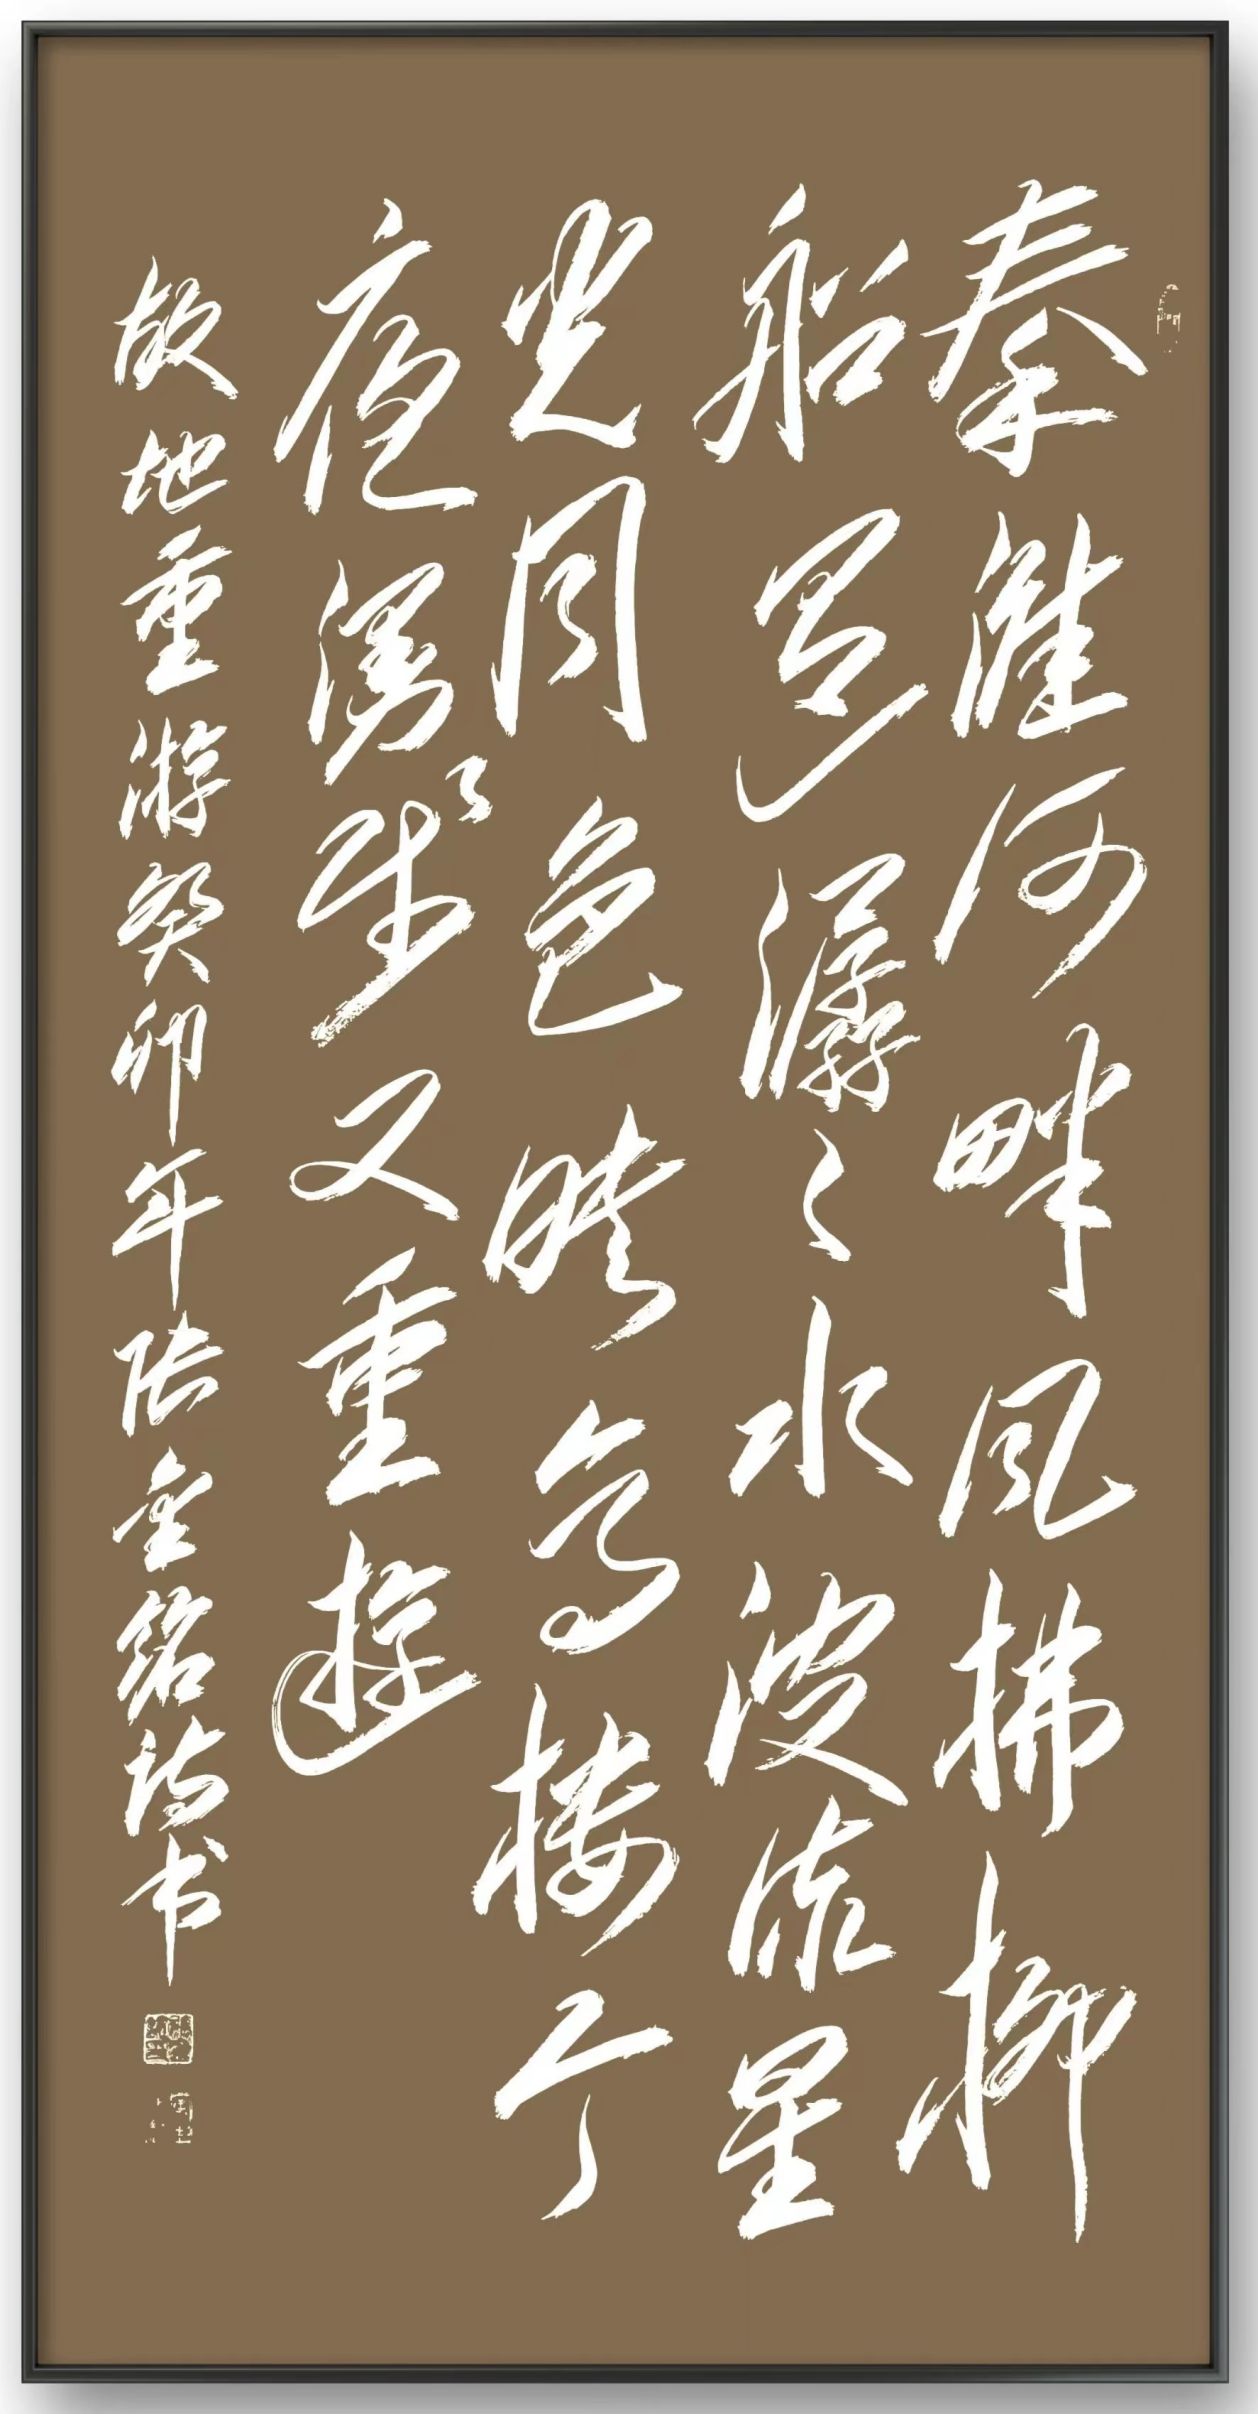 秦淮河畔风拂柳
船与潺〻水波流星
光月色映与楼丁
夜湧〻时又重游
故地重游癸卯年张金铭诗书